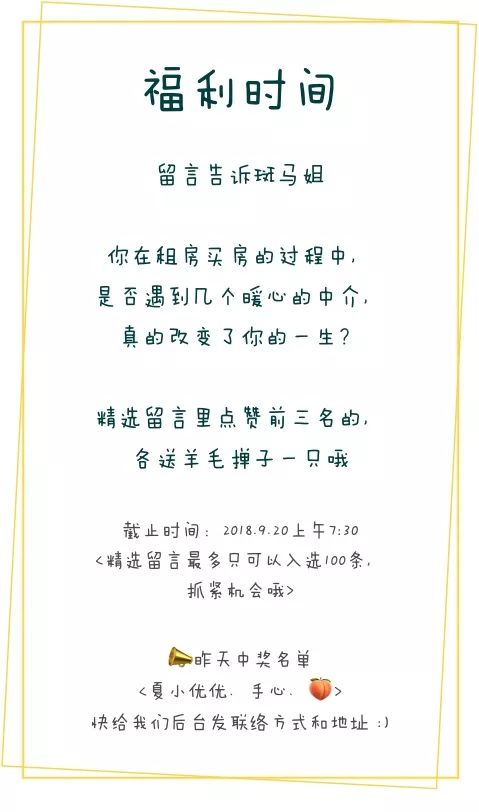 福利时间
留言告诉斑马姐
你在租房买房的过程中,
是否遇到几个暖心的中介,
真的改变了你的一生?
精选留言里点赞前三名的,
各送羊毛掸子一只哦
截止时间: 2018.9.20上午7:30
<精选留言最多只可以入选100条,
抓紧机会哦>
📣昨天中奖名单
<夏小优优. 手心. 🍑>
快给我们后台发联络方式和地址 :)